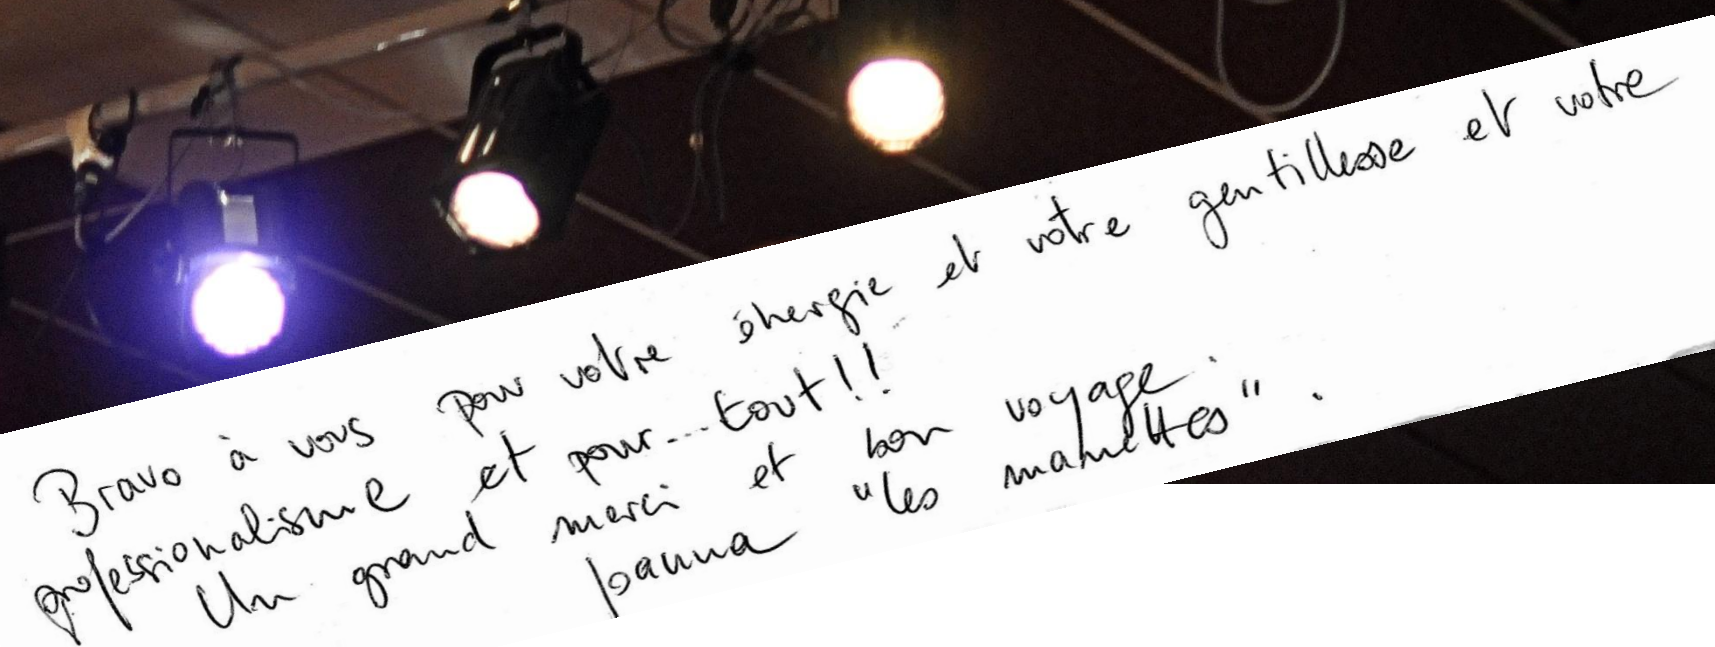 Bravo à vous pour votre énergie et votre gentillesse et votre
professionalisme et pour...tout!!
Un grand merci et bon voyage.
Joanna "les mamettes".